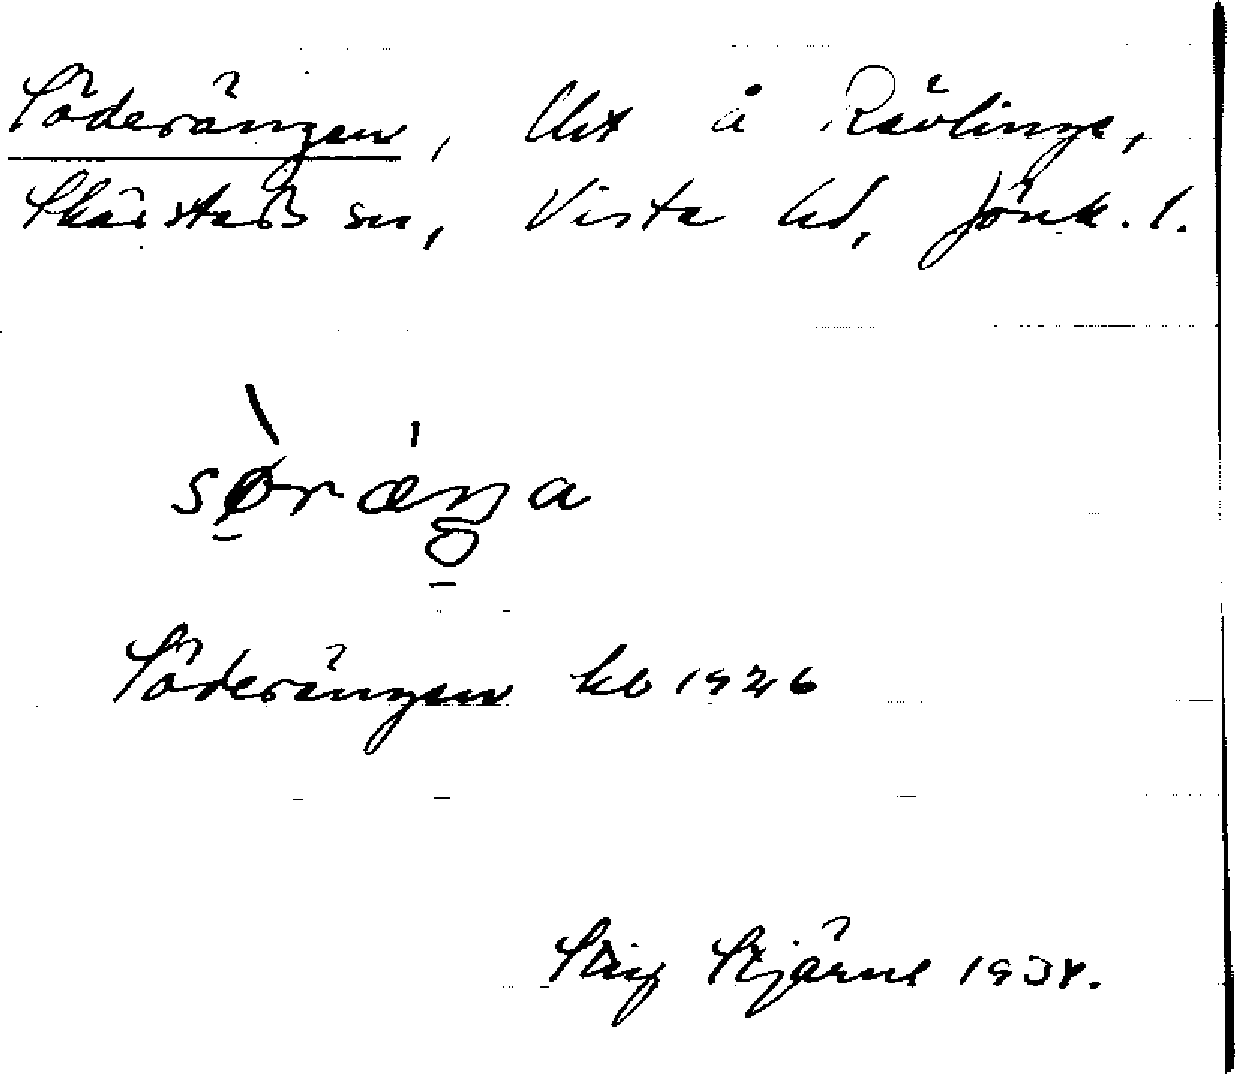 Söderängen, Utx å Rävlinge,
Skärstads sn, Vista hd, Jönk. l.
sø̀ræ̍ŋa
Söderängen kb 1926
Stig Stjärne 1934.